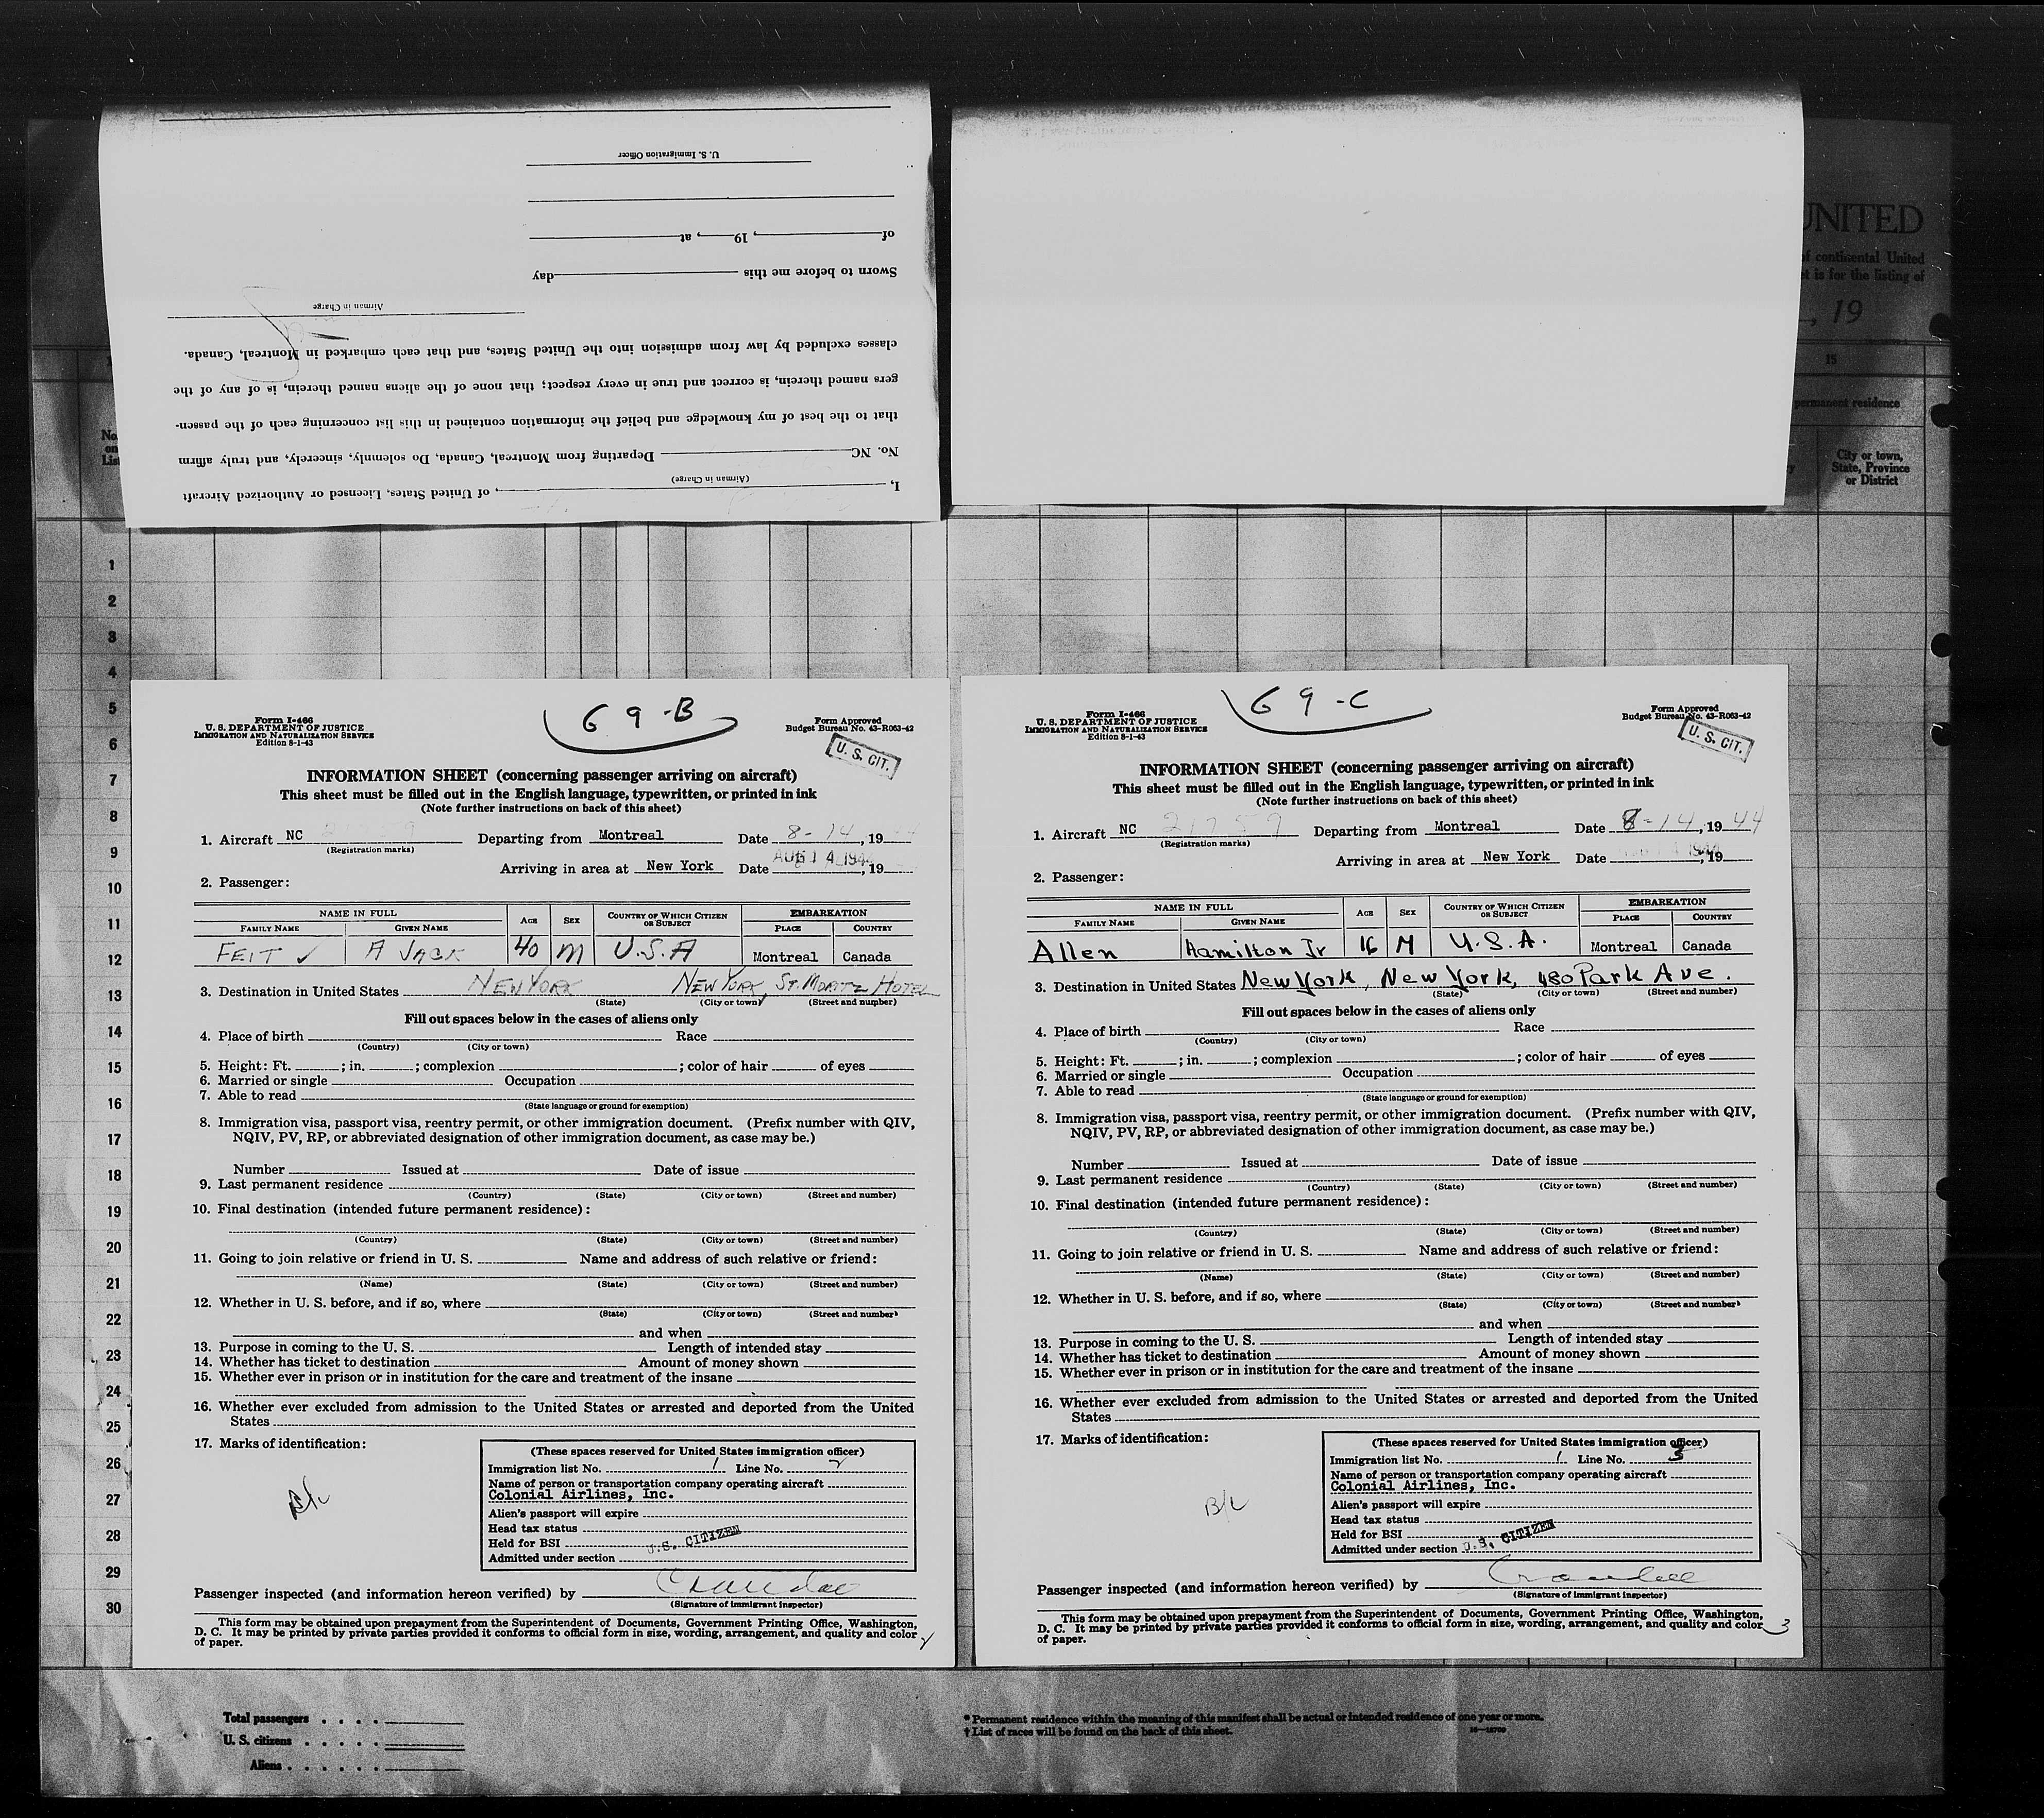 U. S. Immigration Officer
of , 19 , at
Sworn to before me this day
Airman in Charge
classes excluded by law from admission into the United States, and that each embarked in Montreal, Canada.
gers named therein, is correct and true in every respect; that none of the aliens named therein, is of any of the
that to the best of my knowledge and belief the information contained in this list concerning each of the passen-
No. NC Departing from Montreal, Canada, Do solemnly, sincerely, and truly affirm
(Airman in Charge)
I, , of United States, Licensed or Authorized Aircraft
UNITED
of continental United
is for the listing of
, 19
15
permanent residence
No.
on
List
City or town,
State, Province
or District
1
2
3
4
5
6
7
8
9
10
11
12
13
14
15
16
17
18
19
20
21
22
23
24
25
26
27
28
29
30
69-B
Form I-466
U. S. DEPARTMENT OF JUSTICE
IMMIGRATION AND NATURALIZATION SERVICE
Edition 8-1-43
Form Approved
Budget Bureau No. 43-R063-42
U. S. CIT.
INFORMATION SHEET (concerning passenger arriving on aircraft)
This sheet must be filled out in the English language, typewritten, or printed in ink
(Note further instructions on back of this sheet)
1. Aircraft NC Departing from Montreal Date 8-14, 19
(Registration marks)
Arriving in area at New York Date AUG 14 1944, 19
2. Passenger:
NAME IN FULL AGE SEX COUNTRY OF WHICH CITIZEN OR SUBJECT EMBARKATION
FAMILY NAME GIVEN NAME PLACE COUNTRY
FEIT ✓ A JACK 40 M U.S.A Montreal Canada
3. Destination in United States NEW YORK NEW YORK ST. MORITZ HOTEL
(State) (City or town) (Street and number)
Fill out spaces below in the cases of aliens only
4. Place of birth Race
(Country) (City or town)
5. Height: Ft. ; in. ; complexion ; color of hair of eyes
6. Married or single Occupation
7. Able to read
(State language or ground for exemption)
8. Immigration visa, passport visa, reentry permit, or other immigration document. (Prefix number with QIV,
NQIV, PV, RP, or abbreviated designation of other immigration document, as case may be.)
Number Issued at Date of issue
9. Last permanent residence
(Country) (State) (City or town) (Street and number)
10. Final destination (intended future permanent residence):
(Country) (State) (City or town) (Street and number)
11. Going to join relative or friend in U. S. Name and address of such relative or friend:
(Name) (State) (City or town) (Street and number)
12. Whether in U. S. before, and if so, where
(State) (City or town) (Street and number)
and when
13. Purpose in coming to the U. S. Length of intended stay
14. Whether has ticket to destination Amount of money shown
15. Whether ever in prison or in institution for the care and treatment of the insane
16. Whether ever excluded from admission to the United States or arrested and deported from the United
States
17. Marks of identification:
(These spaces reserved for United States immigration officer)
Immigration list No. 1 Line No. 2
Name of person or transportation company operating aircraft
Colonial Airlines, Inc.
Alien's passport will expire
Head tax status
Held for BSI U.S. CITIZEN
Admitted under section
Passenger inspected (and information hereon verified) by
(Signature of immigrant inspector)
This form may be obtained upon prepayment from the Superintendent of Documents, Government Printing Office, Washington,
D. C. It may be printed by private parties provided it conforms to official form in size, wording, arrangement, and quality and color
of paper.
2
69-C
Form I-466
U. S. DEPARTMENT OF JUSTICE
IMMIGRATION AND NATURALIZATION SERVICE
Edition 8-1-43
Form Approved
Budget Bureau No. 43-R063-42
U. S. CIT.
INFORMATION SHEET (concerning passenger arriving on aircraft)
This sheet must be filled out in the English language, typewritten, or printed in ink
(Note further instructions on back of this sheet)
1. Aircraft NC 21759 Departing from Montreal Date 8-14, 1944
(Registration marks)
Arriving in area at New York Date , 19
2. Passenger:
NAME IN FULL AGE SEX COUNTRY OF WHICH CITIZEN OR SUBJECT EMBARKATION
FAMILY NAME GIVEN NAME PLACE COUNTRY
Allen Hamilton Jr 16 M U.S.A. Montreal Canada
3. Destination in United States New York, New York, 480 Park Ave.
(State) (City or town) (Street and number)
Fill out spaces below in the cases of aliens only
4. Place of birth Race
(Country) (City or town)
5. Height: Ft. ; in. ; complexion ; color of hair of eyes
6. Married or single Occupation
7. Able to read
(State language or ground for exemption)
8. Immigration visa, passport visa, reentry permit, or other immigration document. (Prefix number with QIV,
NQIV, PV, RP, or abbreviated designation of other immigration document, as case may be.)
Number Issued at Date of issue
9. Last permanent residence
(Country) (State) (City or town) (Street and number)
10. Final destination (intended future permanent residence):
(Country) (State) (City or town) (Street and number)
11. Going to join relative or friend in U. S. Name and address of such relative or friend:
(Name) (State) (City or town) (Street and number)
12. Whether in U. S. before, and if so, where
(State) (City or town) (Street and number)
and when
13. Purpose in coming to the U. S. Length of intended stay
14. Whether has ticket to destination Amount of money shown
15. Whether ever in prison or in institution for the care and treatment of the insane
16. Whether ever excluded from admission to the United States or arrested and deported from the United
States
17. Marks of identification:
B/C
(These spaces reserved for United States immigration officer)
Immigration list No. 1 Line No. 3
Name of person or transportation company operating aircraft
Colonial Airlines, Inc.
Alien's passport will expire
Head tax status
Held for BSI
Admitted under section U.S. CITIZEN
Passenger inspected (and information hereon verified) by
(Signature of immigrant inspector)
This form may be obtained upon prepayment from the Superintendent of Documents, Government Printing Office, Washington,
D. C. It may be printed by private parties provided it conforms to official form in size, wording, arrangement, and quality and color
of paper.
3
Total passengers . . . .
U. S. citizens . . . . .
Aliens . . . . . .
* Permanent residence within the meaning of this manifest shall be actual or intended residence of one year or more.
† List of races will be found on the back of this sheet.